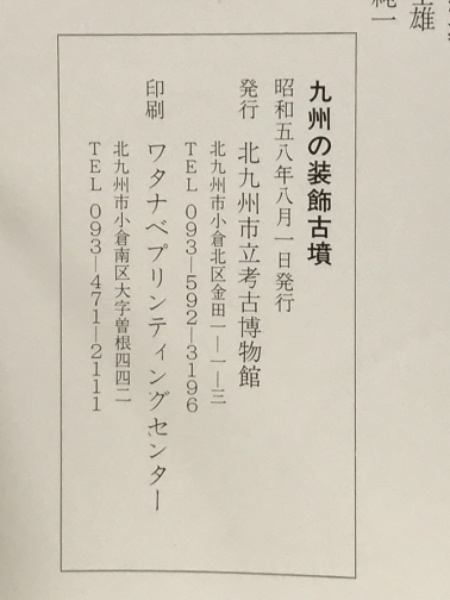 雄
純一
九州の装飾古墳
昭和五八年八月一日発行
発行 北九州市立考古博物館
北九州市小倉北区金田一―一―三
TEL 093―592―3196
印刷 ワタナベプリンティングセンター
北九州市小倉南区大字曽根四四二
TEL 093―471―2111